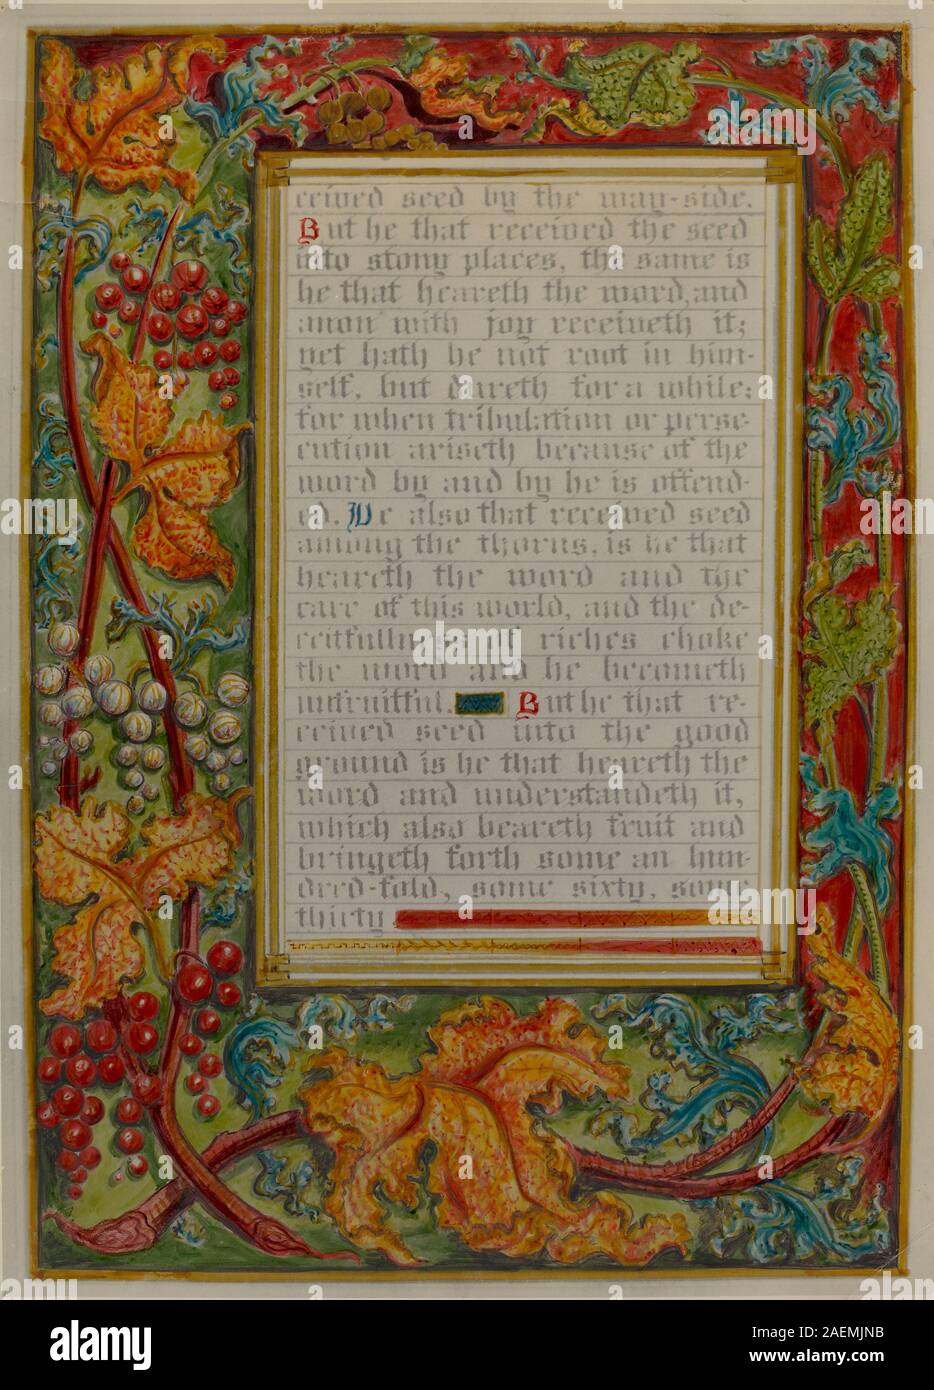 ceived seed by the way-side.
But he that received the seed
into stony places, the same is
he that heareth the word, and
anon with joy receiveth it;
yet hath he not root in him-
self, but dureth for a while:
for when tribulation or perse-
cution ariseth because of the
word by and by he is offend-
ed. He also that received seed
among the thorns, is he that
heareth the word and the
care of this world, and the de-
ceitfullness of riches choke
the word and he becometh
unfruitful. But he that re-
ceived seed into the good
ground is he that heareth the
word and understandeth it,
which also beareth fruit and
bringeth forth some an hun-
dred-fold, some sixty, some
thirty
alamy
alamy
Image ID: 2AEMJNB
www.alamy.com